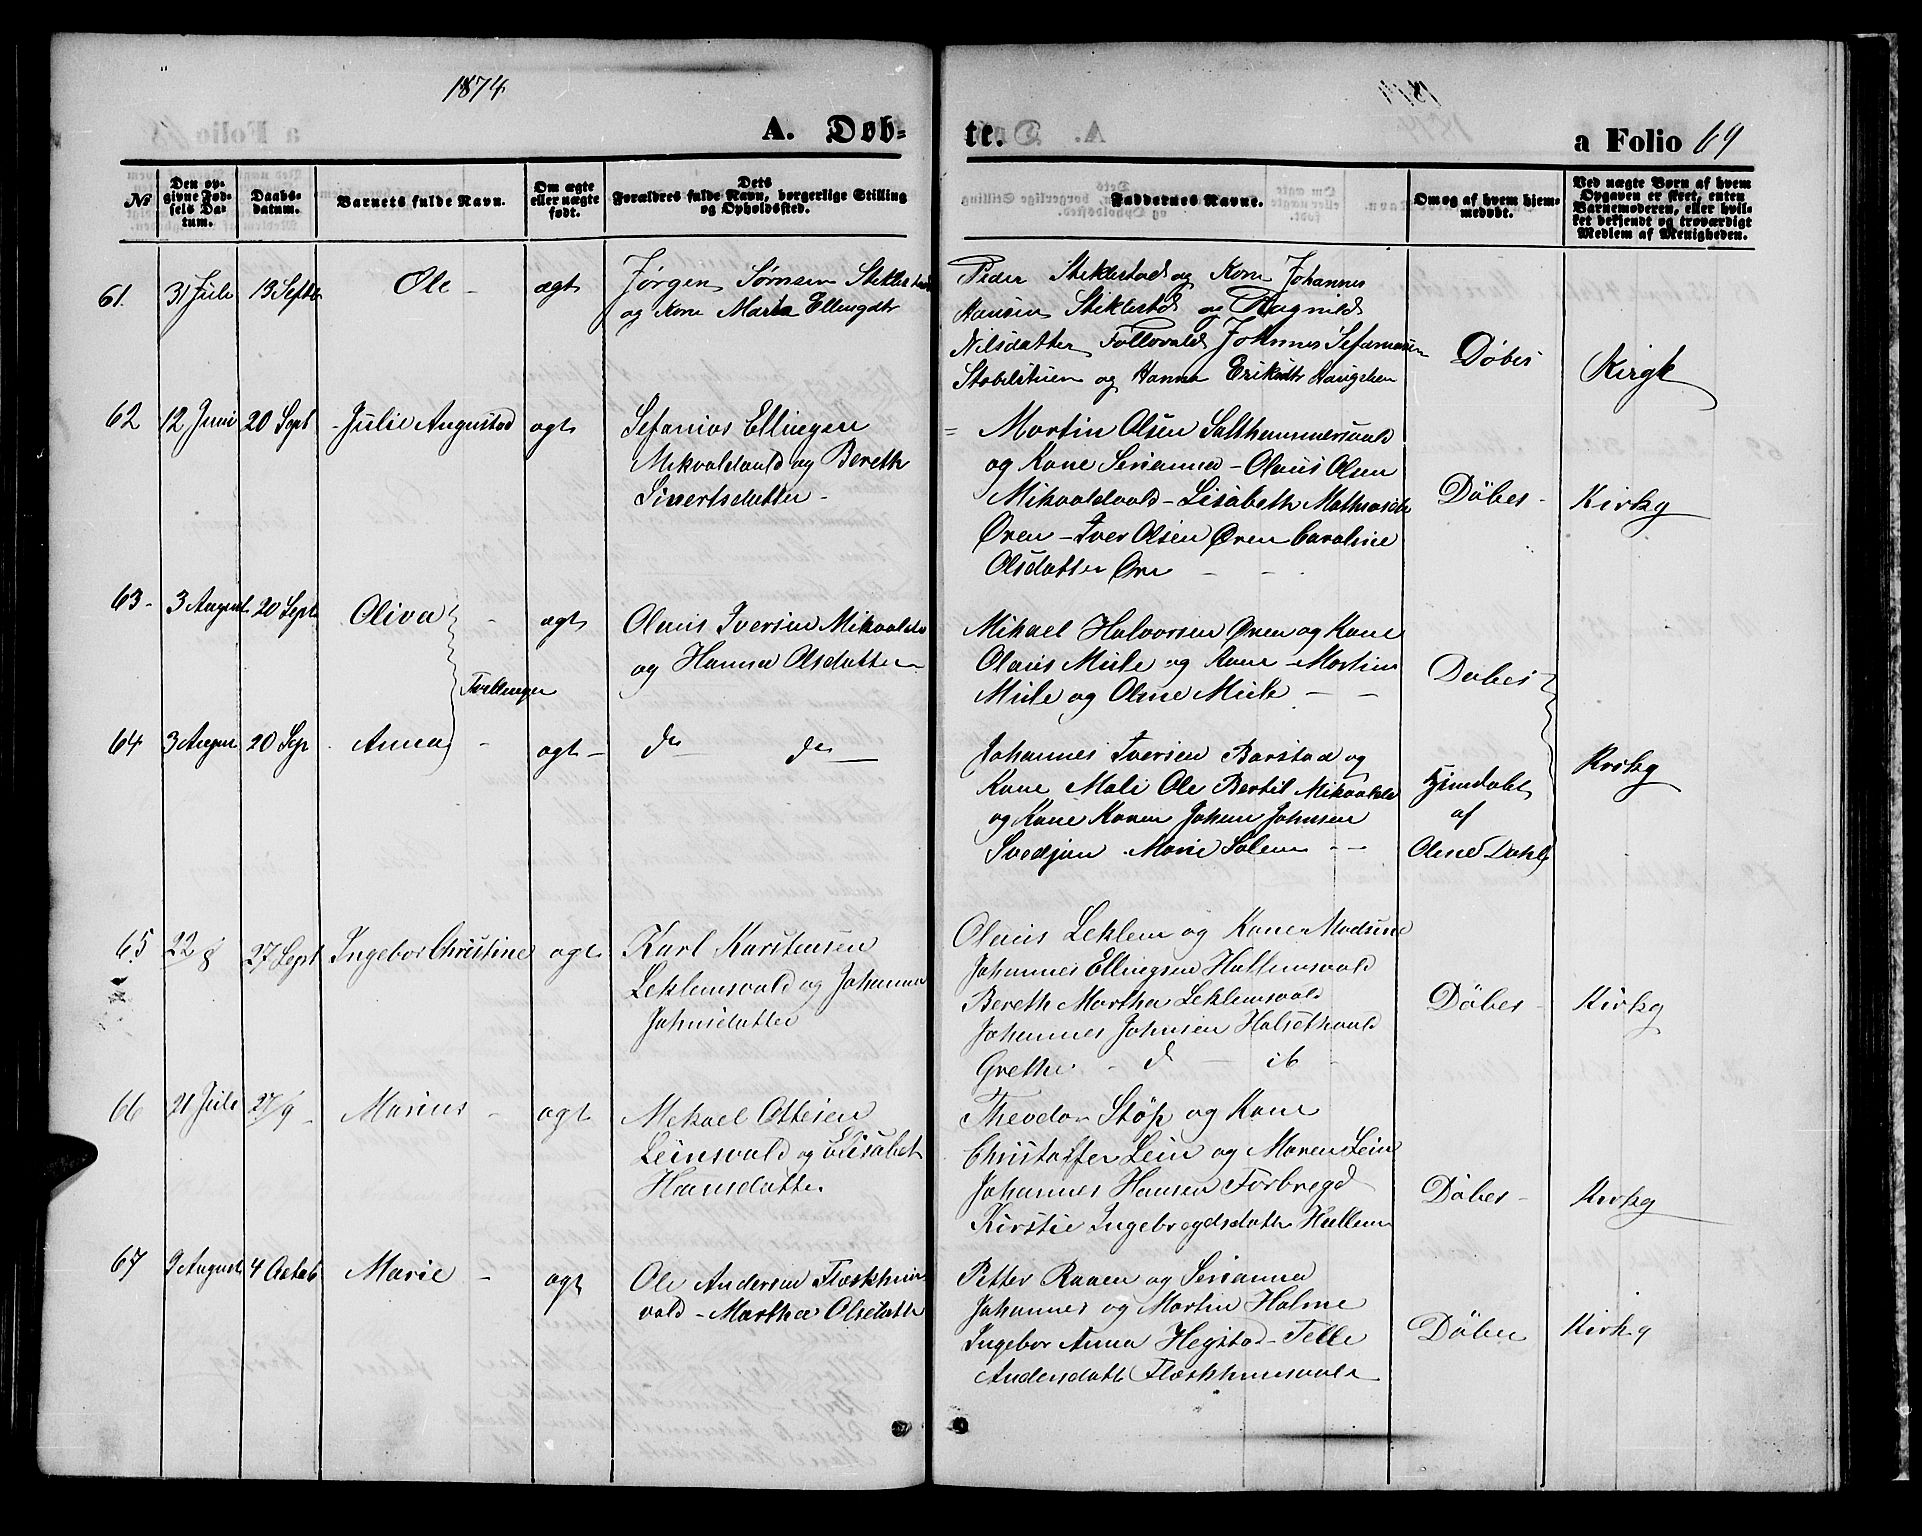 1874
A. Døb-
te.
a Folio 69
№
Den op-
givne Fød-
sels Da-
tum.
Daabs-
datum.
Barnets fulde Navn.
Om ægte
eller uægte
født.
Dets
Forældres fulde Navn, borgerlige Stilling
og Opholdssted.
Faddernes Navne.
Om og af hvem hjem-
medøbt.
Ved uægte Børn af hvem
Opgaven er skeet, enten
Barnemoderen, eller hvil-
ket bekjendt og troværdigt
Medlem af Menigheden.
61. 31 Juli 13 Septbr Ole - ægt
Jørgen Sørnsen Stiklestad
og Kone Marta Ellingdtr
Peder Stiklestad og Kone Johannes
Hansen Stiklestad og Ragnild
Nilsdatter Follovald Johannes
og Hanna Eriksdtr Haugshen
Døbes Kirgk
62 12 Juni 20 Sept Julie Augustad ægt
Sefanias Ellingsen
Mikvoldvald og Bereth
Sivertsdatter -
Martin Olsen Salthammersvald
og Kone Serianna - Olaus Olsen
Mikvoldvald - Lisabeth Mathiasdtr
Øren - Iver Olsen Øren Caroline
Olsdatter Øre - -
Døbes - Kirkg
63 - 3 August 20 Sept Oliva - ægt
Tvillinger
Olaus Iversen Mikvolds
og Hanna Olsdatter
Mikael Halvorsen Øren og Kone
Olaus Musle og Kone - Martin
Musle og Oline Musle - -
Døbes
64 3 August 20 Sep Anna - ægt -
do do
Johannes Iversen Barstad og
Kone Mali Ole Bertil Mikvolds
og Kone Karen Johan Johnsen
Svedjan Marie Salem - -
Hjemdøbt
af
Oline Dahl
Kirkg
65 22/8 27 Sept Ingebor Christine ægt
Karl Karstensen
Leklemsvald og Johanna
Johnsdatter
Olaus Leklem og Kone Madsine
Johannes Ellingsen Hallemsvald
Bereth Martha Leklemsvald
Johannes Johnsen Halsethvald
Grethe - d - ib -
Døbes - Kirkg
66 21 Juli 27/9 - Marius - ægt
Mekael Ottesen
Leinsvald og Elisabet
Hansdatter
Theodor Støp og Kone
Christoffer Lein og Maren Lein
Johannes Hansen Forbregd
Kirstie Ingebregdsdatter Hallem
Døbes - Kirkg
67 9 August 4 Octob Marie - ægt
Ole Andersen Flæskhus
vald - Martha Olsdatter
Petter Raaen og Serianna
Johannes og Martin Holme
Ingebor Anna Hegstad - Telle
Andersdatter Flæskhusvald
Døbes Kirkg